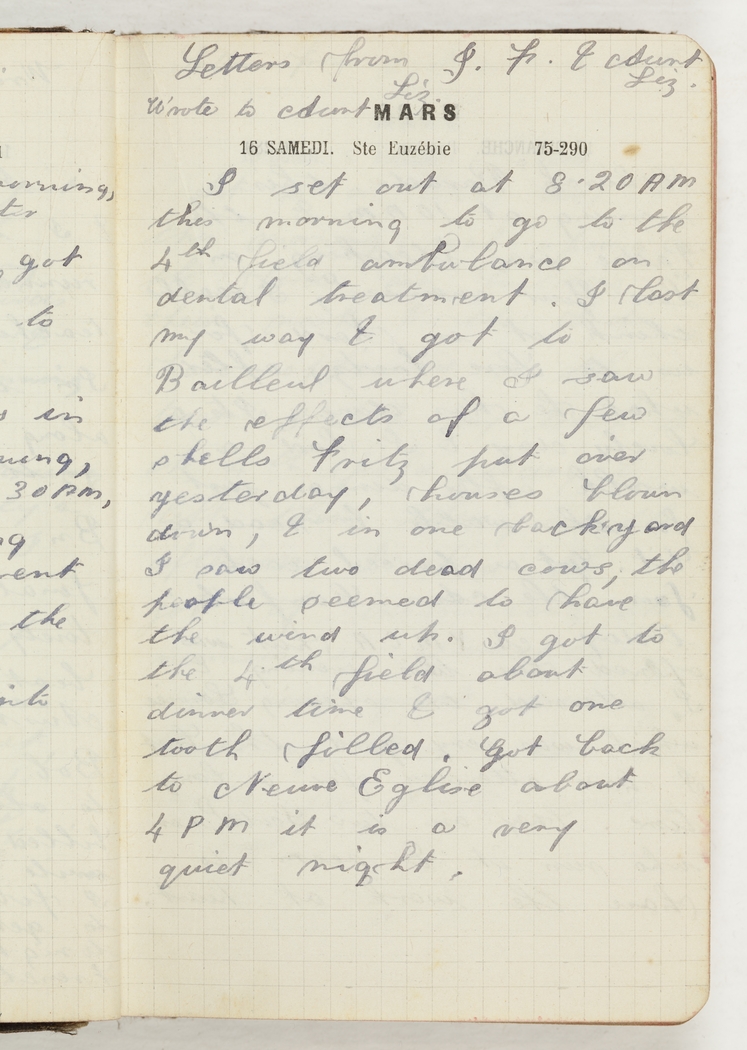 Letters from J. F. & Aunt
Liz.
Wrote to Aunt Liz.
MARS
16 SAMEDI. Ste Euzébie 75-290
I set out at 8.20 AM
this morning to go to the
4th field ambulance on
dental treatment. I lost
my way & got to
Bailleul where I saw
the effects of a few
shells Fritz put over
yesterday, houses blown
down, & in one backyard
I saw two dead cows, the
people seemed to have
the wind up. I got to
the 4th field about
dinner time & got one
tooth filled. Got back
to Neuve Eglise about
4 PM it is a very
quiet night.
orning,
ter
got
to
s in
ning,
30 AM,
ng
vent
the
into